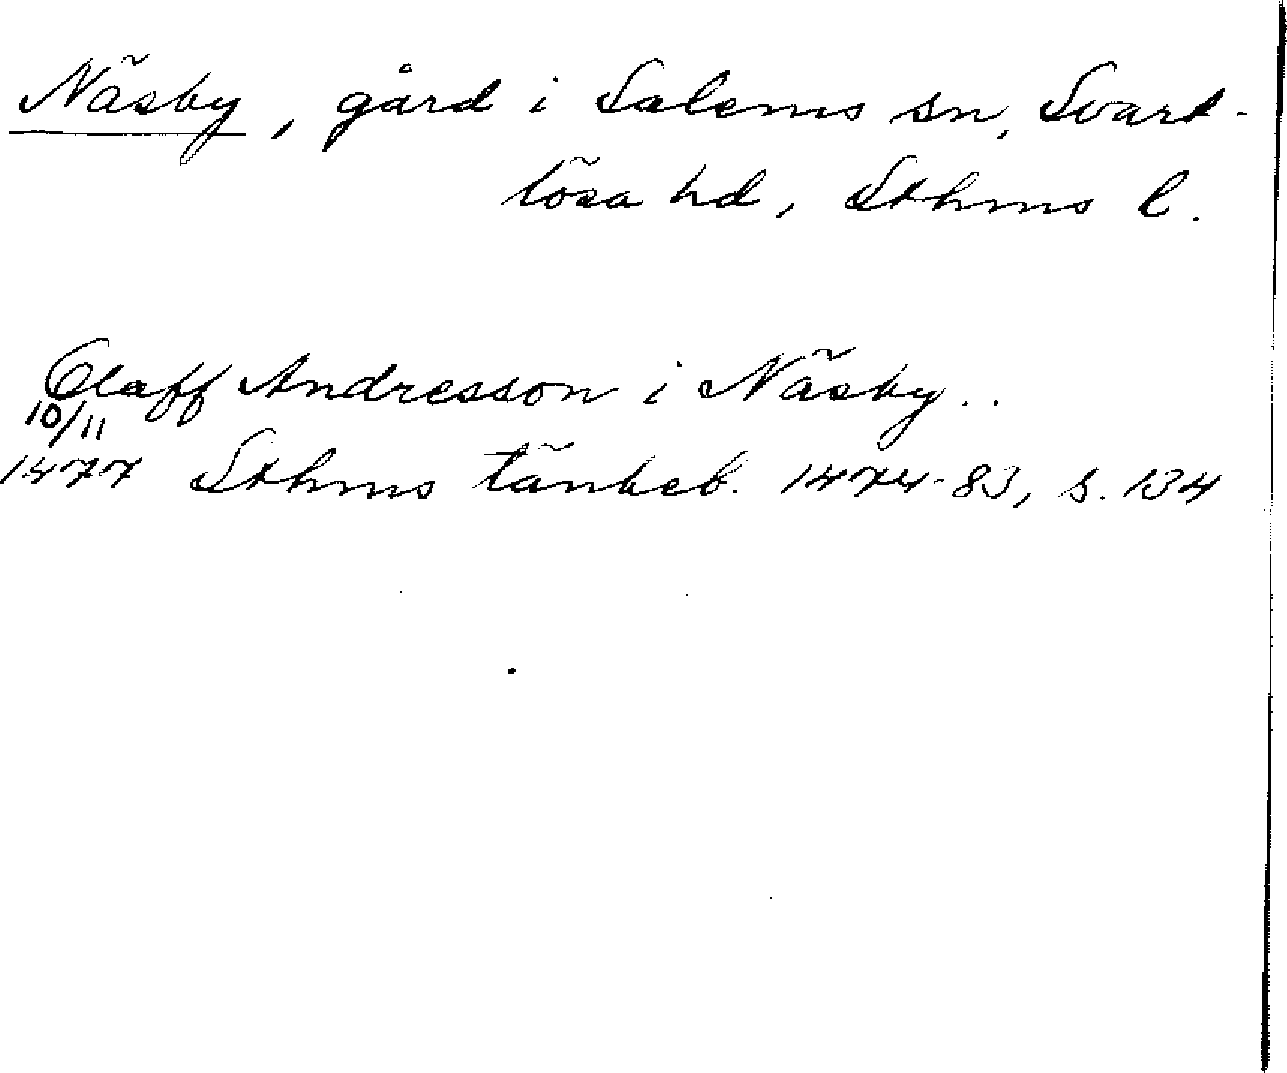 Näsby, gård i Salems sn, Svart-
lösa hd, Sthms l.
Olaff Andresson i Näsby..
10/11
1477 Sthms tänkeb. 1474-83, s. 134